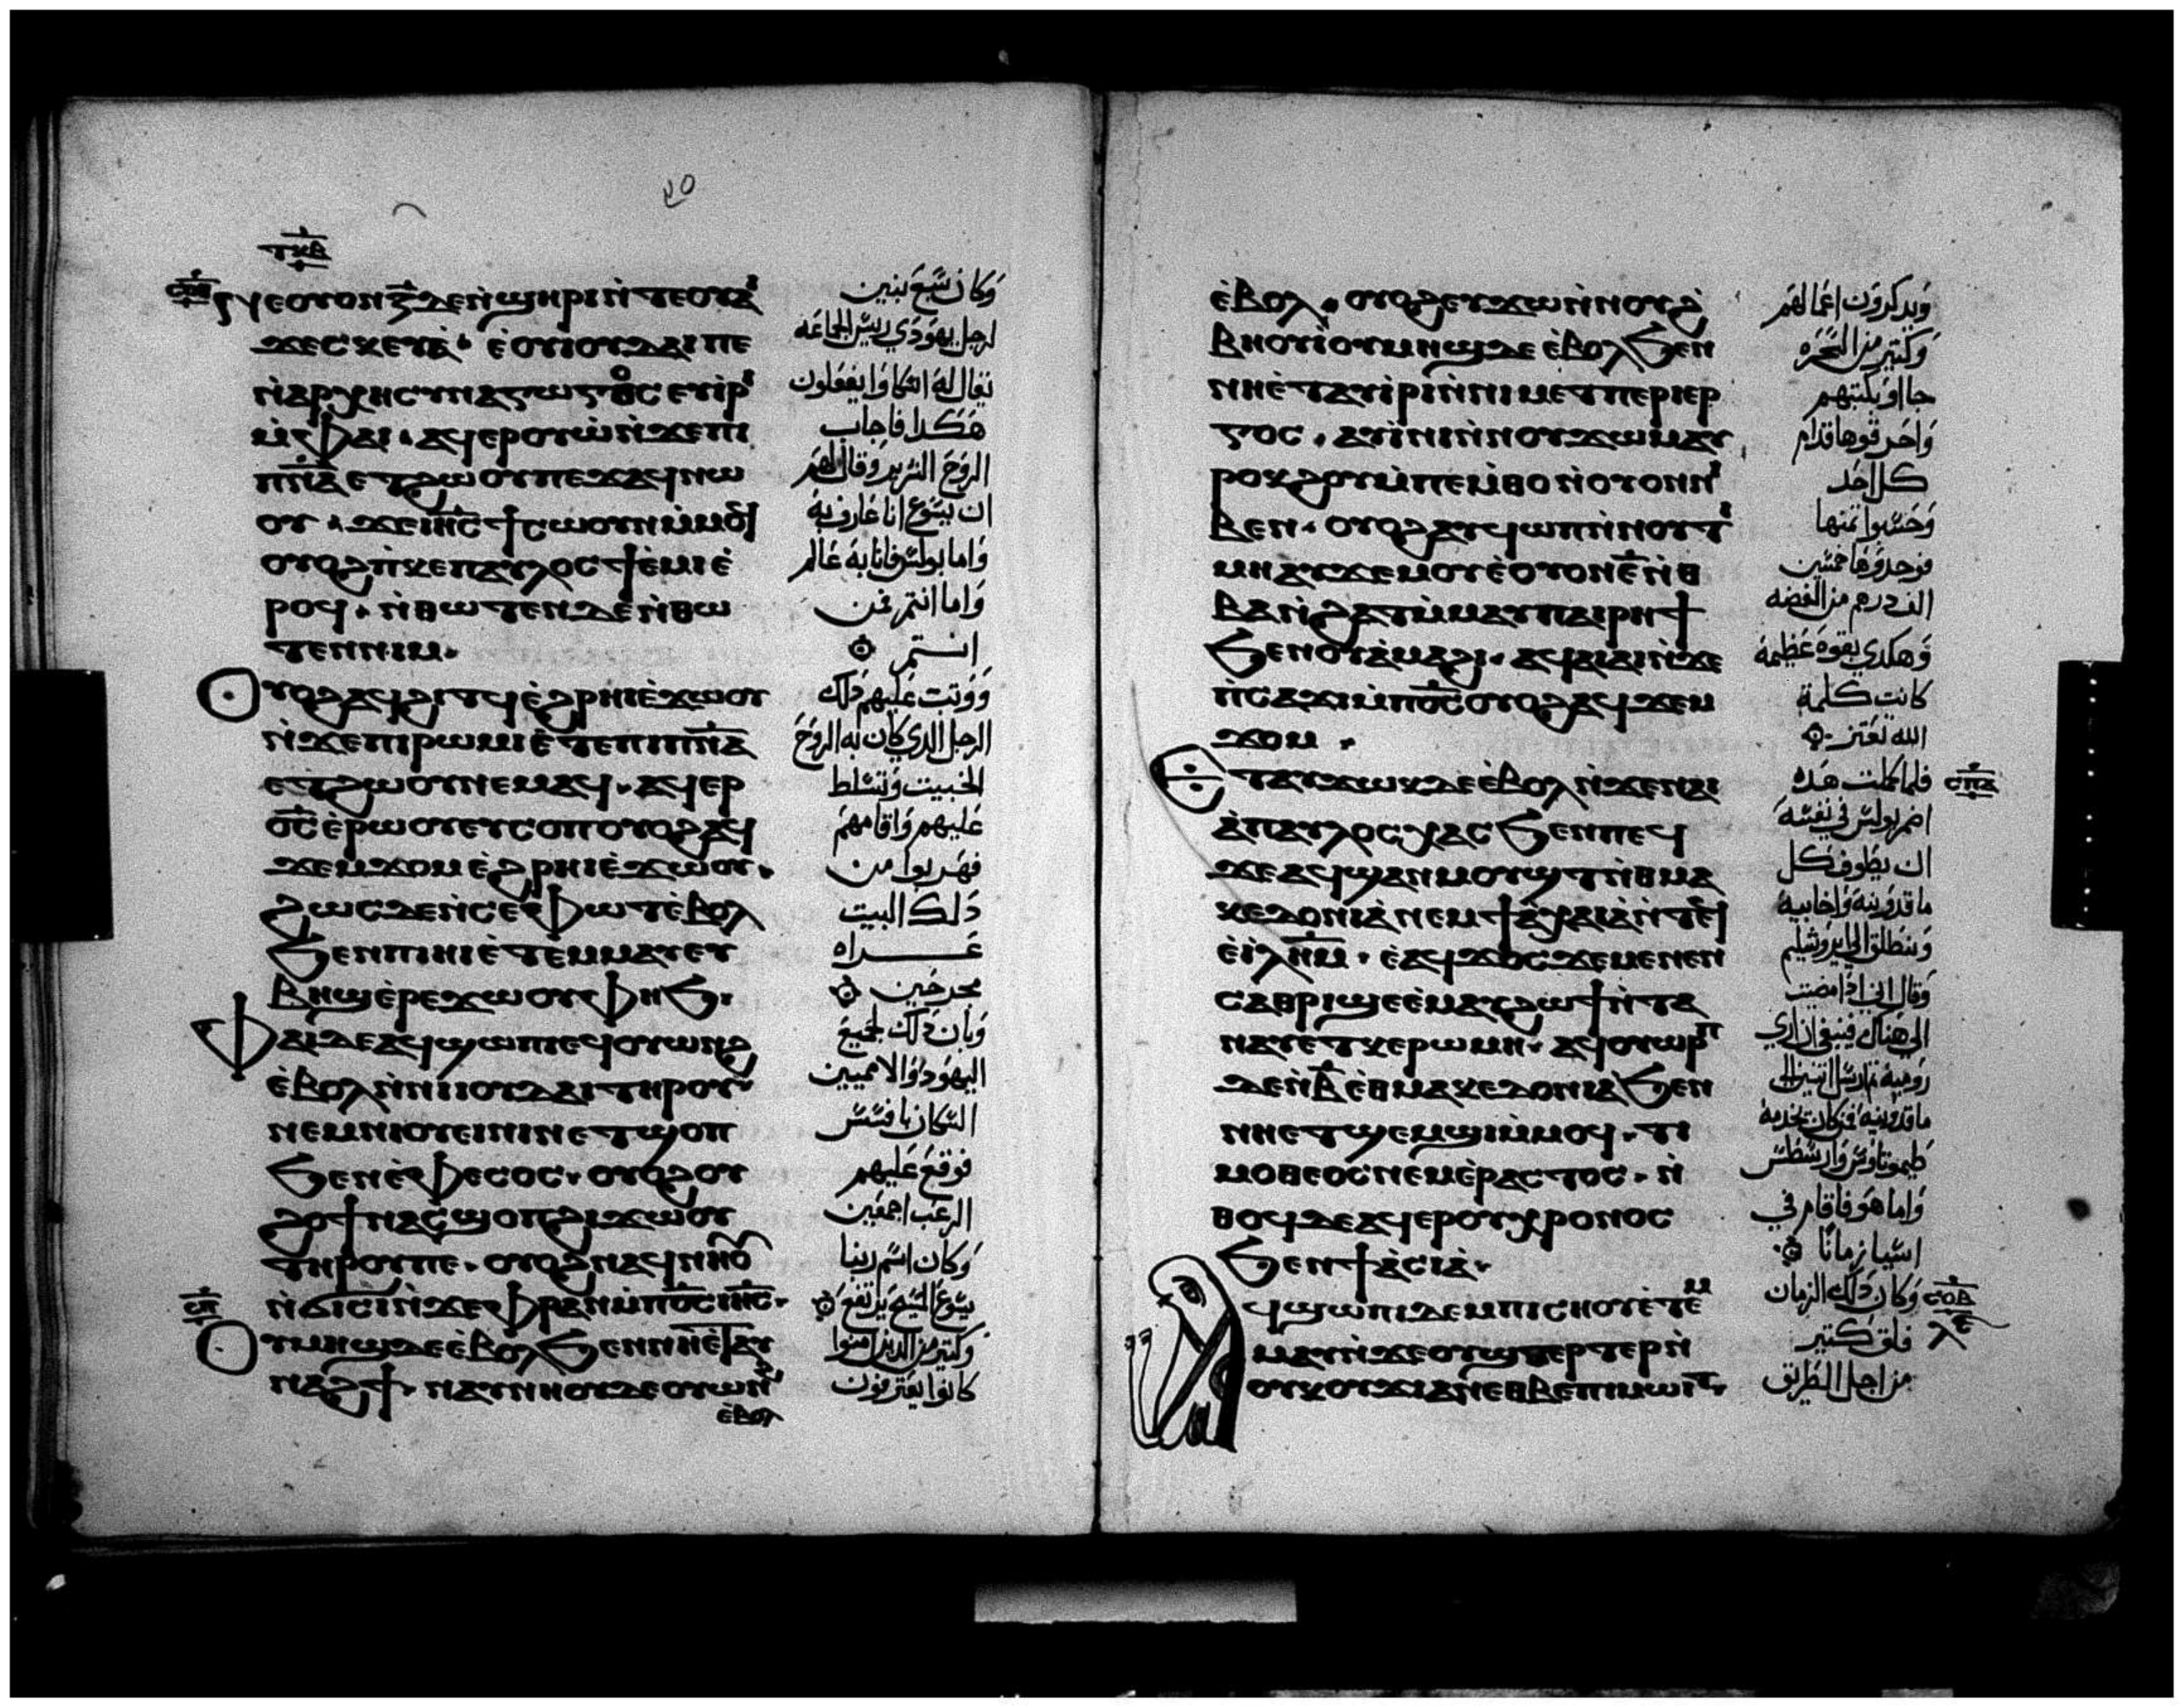 ⲧⲕⲃ
ⲛⲉⲟⲩⲟⲛ ⲍ̅ ⲇⲉ ⲛ̀ϣⲏⲣⲓ ⲛ̀ⲧⲉ ⲟⲩⲁ
ϫⲉ ⲥⲕⲉⲩⲁ̀ · ⲉ̀ⲟⲩⲓⲟⲩⲇⲁⲓ ⲡⲉ
ⲙ̀ⲫⲁⲓ · ⲁϥⲉⲣⲟⲩⲱ̀ ⲛ̀ϫⲉ ⲡⲓ
ⲡ̅ⲛ̅ⲁ̅ ⲉⲧϩⲱⲟⲩ ⲡⲉϫⲁϥ ⲛⲱ
ⲟⲩ · ϫⲉ ⲓⲏ̅ⲥ̅ ϯⲥⲱⲟⲩⲛ ⲙ̀ⲙⲟϥ
ⲟⲩⲟϩ ⲡ̀ⲕⲉⲡⲁⲩⲗⲟⲥ ϯⲉ̀ⲙⲓ ⲉ̀
ⲣⲟϥ · ⲛ̀ⲑⲱⲧⲉⲛ ⲇⲉ ⲛ̀ⲑⲱ
ⲧⲉⲛ ⲛⲓⲙ ·
ⲟⲩⲟϩ ⲁϥϩⲓⲧϥ ⲉ̀ϩⲣⲏⲓ ⲉ̀ϫⲱⲟⲩ
ⲛ̀ϫⲉ ⲡⲓⲣⲱⲙⲓ ⲉ̀ⲧⲉ ⲡⲓⲡ̅ⲛ̅ⲁ̅
ⲉⲧϩⲱⲟⲩ ⲛⲉⲙⲁϥ · ⲁϥⲉⲣ
ⲟ̅ⲥ̅ ⲉ̀ⲣⲱⲟⲩ ⲉⲩⲥⲟⲡ ⲟⲩⲟϩ ⲁϥ
ϫⲉⲙϫⲟⲙ ⲉ̀ϩⲣⲏⲓ ⲉ̀ϫⲱⲟⲩ ·
ϩⲱⲥⲇⲉ ⲛ̀ⲥⲉⲫⲱⲧ ⲉ̀ⲃⲟⲗ
ϧⲉⲛ ⲡⲓⲏⲓ ⲉ̀ⲧⲉⲙⲙⲁⲩ ⲉⲩ
ⲃⲏϣ ⲉ̀ⲣⲉ ϫⲱⲟⲩ ⲫⲏϧ ·
ⲫⲁⲓ ⲇⲉ ⲁϥϣⲱⲡⲓ ⲉϥⲟⲩⲱⲛϩ
ⲉ̀ⲃⲟⲗ ⲛ̀ⲛⲓⲓⲟⲩⲇⲁⲓ ⲧⲏⲣⲟⲩ
ⲛⲉⲙ ⲛⲓⲟⲩⲉⲓⲛⲓⲛ ⲉⲧϣⲟⲡ
ϧⲉⲛ ⲉ̀ⲫⲉⲥⲟⲥ · ⲟⲩⲟϩ ⲟⲩ
ϩⲟϯ ⲛⲁⲥϣⲟⲡ ϩⲓϫⲱⲟⲩ
ⲧⲏⲣⲟⲩ ⲡⲉ · ⲟⲩⲟϩ ⲛⲁϥⲛⲏⲟⲩ
ⲛ̀ϭⲓⲥⲓ ⲛ̀ϫⲉ ⲫⲣⲁⲛ ⲙ̀ⲡⲟ̅ⲥ̅ ⲓⲏ̅ⲥ̅ ·
ⲥⲡ
ⲟⲩⲙⲏϣ ⲇⲉ ⲉ̀ⲃⲟⲗ ϧⲉⲛ ⲛⲏⲉ̀ⲧⲁⲩ
ⲛⲁϩϯ · ⲛⲁⲩⲛⲏⲟⲩ ⲇⲉ ⲟⲩⲱⲛ
ⲉ̀ⲃⲟⲗ
وكان سبع بنين
لرجل يهودي ريس الجماعه
يقال له اسكاوا يفعلون
هكدا فاجاب
الروح الشرير وقال لهم
ان يسوع انا عارف به
واما بولس فانا به عالم
واما انتم فمن
انتم
ووتب عليهم دلك
الرجل الدي كان به الروح
الخبيت وتسلط
عليهم واقامهم
فهربوا من
دلك البيت
عراه
مجرحين
وبان دلك لجميع
اليهود والامميين
السكان بافسس
فوقع عليهم
الرعب اجمعين
وكان اسم ربنا
يسوع المسيح يرتفع
وكتير من الدين امنوا
كانوا يعترفون
ⲉ̀ⲃⲟⲗ · ⲟⲩⲟϩ ⲉⲩϫⲱ ⲛ̀ⲛⲟⲩϩ̀
ⲃⲏⲟⲩⲓ̀ ⲟⲩⲙⲏϣ ⲇⲉ ⲉ̀ⲃⲟⲗ ϧⲉⲛ
ⲛⲏⲉ̀ⲧⲁⲩⲓ̀ⲣⲓ ⲛ̀ⲛⲓⲙⲉⲧⲡⲉⲣⲓⲉⲣ
ⲅⲟⲥ · ⲁⲩⲓ̀ⲛⲓ ⲛ̀ⲛⲟⲩϫⲱⲙ ⲁⲩ
ⲣⲟⲕϩⲟⲩ ⲙ̀ⲡⲉⲙ̀ⲑⲟ ⲛ̀ⲟⲩⲟⲛ ⲛ
ⲃⲉⲛ · ⲟⲩⲟϩ ⲁⲩϥⲓⲱⲡ ⲛ̀ⲛⲟⲩⲧ
ⲙⲏ ⲁⲩϫⲉⲙⲟⲩ ⲉ̀ⲟⲩⲟⲛ ⲉ̅ ⲛ̀ⲑ
ⲃⲁ ⲛ̀ϩⲁⲧ ⲙ̀ⲙⲁⲩ ⲡⲁⲓⲣⲏϯ
ϧⲉⲛ ⲟⲩⲁ̀ⲙⲁϩⲓ · ⲁϥⲁⲓⲁⲓ ⲛ̀ϫⲉ
ⲡ̀ⲥⲁϫⲓ ⲙ̀ⲡⲟ̅ⲥ̅ ⲟⲩⲟϩ ⲁϥϫⲉⲙ
ϫⲟⲙ ·
ⲉ̀ⲧⲁⲩϫⲱⲕ ⲇⲉ ⲉ̀ⲃⲟⲗ ⲛ̀ϫⲉ ⲛⲁⲓ
ⲁ̀ ⲡⲁⲩⲗⲟⲥ ⲭⲁⲥ ϧⲉⲛ ⲡⲉϥ
ϫⲉ ⲁϥϣⲁⲛⲙⲟⲩϣⲧ ⲛ̀ⲑⲙⲁ
ⲕⲉⲇⲟⲛⲓⲁ̀ ⲛⲉⲙ ϯⲁ̀ⲭⲁⲓⲁ̀ ⲛ̀ⲧⲉϥ
ⲉ̀ⲓ̅ⲗ̅ⲏ̅ⲙ̅ · ⲉ̀ⲁϥϫⲟⲥ ϫⲉ ⲙⲉⲛⲉⲛ
ⲥⲁ ⲑⲣⲓϣⲉ ⲉ̀ⲙⲁⲩ ϩⲱϯ ⲛ̀ⲧⲁ
ⲛⲁⲩ ⲉⲧⲕⲉⲣⲱⲙⲏ · ⲁϥⲟⲩⲱⲣⲡ
ⲇⲉ ⲛ̀ⲃ̅ ⲉ̀ⲑⲙⲁⲕⲉⲇⲟⲛⲓⲁ ϧⲉⲛ
ⲛⲏⲉⲧϣⲉⲙϣⲓ ⲙ̀ⲙⲟϥ · ⲧⲓ
ⲙⲟⲑⲉⲟⲥ ⲛⲉⲙ ⲉ̀ⲣⲁⲥⲧⲟⲥ · ⲛ̀
ⲑⲟϥ ⲇⲉ ⲁϥⲉⲣ ⲟⲩⲭⲣⲟⲛⲟⲥ
ϧⲉⲛ ϯⲁ̀ⲥⲓⲁ̀ ·
ⲁϥϣⲱⲡⲓ ⲇⲉ ⲙ̀ⲡⲓⲥⲏⲟⲩ ⲉ̀ⲧⲉⲙ
ⲙⲁⲩ ⲛ̀ϫⲉ ⲟⲩϣⲑⲉⲣⲧⲉⲣ ⲛ̀
ⲟⲩⲕⲟⲩϫⲓ ⲁⲛ ⲉⲑⲃⲉ ⲡⲓⲙⲱⲓⲧ ·
ويدكرون اعمالهم
وكتير من السحره
جااو بكتبهم
واحرقوها قدام
كل احد
وحسبوا تمنها
فوجدوها خمسين
الف درهم من الفضه
وهكدي بقوه عظيمه
كانت كلمة
الله تعتز
فلما كملت هده
اضمر بولس في نفسه
ان يطوف كل
ماقدونيه واخاييه
وينطلق الي ايروشليم
وقال اني ادا مضيت
الي هناك فينبغي ان اري
روميه تم ارسل اتنين الي
ماقدونيه ممن كان يخدمه
طيموتاوس وارسطس
واما هو فاقام في
اسيا زمانا
وكان دلك الزمان
قلق كتير
من اجل الطريق